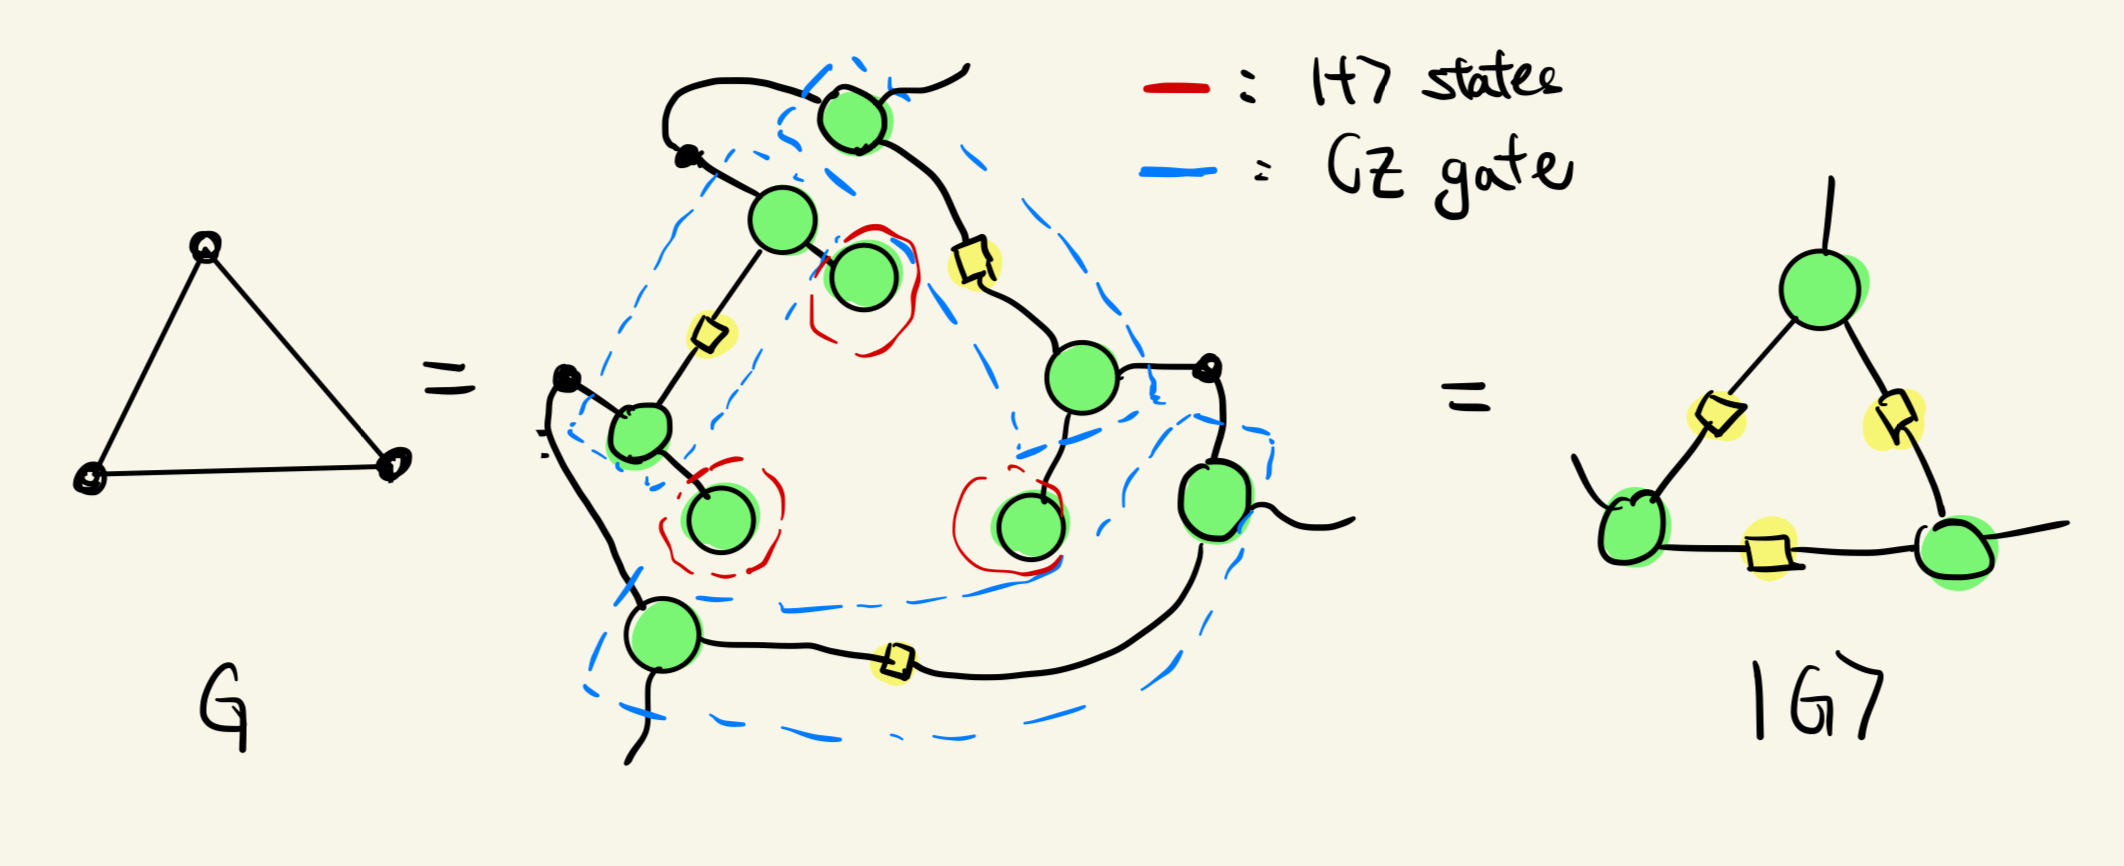 : |+> states
: CZ gate
=
=
G
|G>